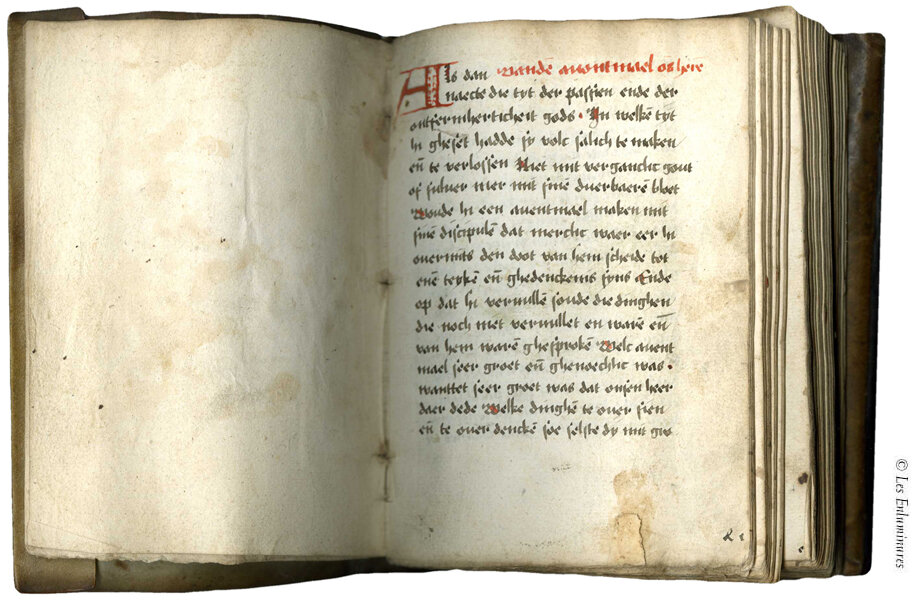 Als dan Vandē auontmael ōs here
naecte die tyt der passien ende der
ontfermherticheit gods · In welkē tyt
hi gheset hadde sy volc salich te maken
en̄ te verlossen Niet mit vergancht gout
of siluer mer mit sinē duerbaerē bloet
Woude hi een auentmael maken mit
sinē discipulē dat mercht waer eer hi
ouermits den doot van hem scheide tot
enē teykē en̄ ghedenckenis syns Ende
op dat hi veruullē soude die dinghen
die noch niet veruullet en warē en̄
van hem warē ghesprokē Welc auent
mael seer groet en̄ ghenoechlic was ·
wanttet seer groet was dat onsen heer
daer dede Welke dinghē te ouer sien
en̄ te ouer denckē soe selste dy mit gro
© Les Enluminures